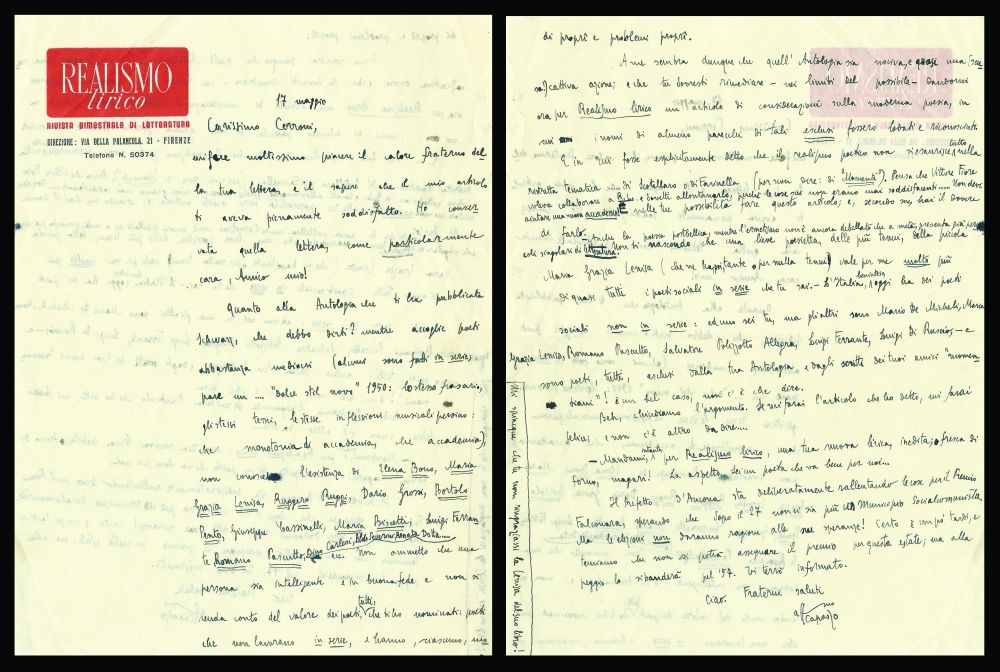 REALISMO
lirico
RIVISTA BIMESTRALE DI LETTERATURA
DIREZIONE: VIA DELLA PALANCOLA, 21 - FIRENZE
Telefono N. 50374
17 maggio
Carissimo Cerroni,
mi fece moltissimo piacere il valore fraterno del
la tua lettera, e il sapere che il mio articolo
ti aveva pienamente soddisfatto. Ho conser
vata quella lettera, come particolarmente
cara, Amico mio!
Quanto alla Antologia che ti ha pubblicata
Schwarz, che debbo dirti? mentre accoglie poeti
abbastanza mediocri (alcuni sono fatti in serie,
pare un .... "dolce stil novo" 1950: lo stesso frasario,
gli stessi temi, le stesse inflessioni musicali persino:
che monotonia di accademia, che accademia),
non conosce l'esistenza di Elena Bono, Maria
Grazia Lenisa, Ruggero Ruggi, Dario Grossi, Bortolo
Pento, Giuseppe Cassinelli, Maria Bisetti, Luigi Ferran
te, Romano Pascutto, Dino Carlesi, Aldo Guerrini, Renata Dotta.... ecc. Non ammetto che una
persona sia intelligente e in buona fede e non si
renda conto del valore dei poeti, tutti, che ti ho nominati: poeti
che non lavorano in serie, e hanno, ciascuno, mo
di propri e problemi propri.
A me sembra dunque che quell'Antologia sia nociva, e quasi una
cattiva azione; e che tu dovresti rimediare - nei limiti del possibile - dandomi
ora per Realismo lirico un articolo di considerazioni sulla moderna poesia, in
cui i nomi di almeno parecchi di tali esclusi fossero lodati e riconosciuti.
E in cui fosse esplicitamente detto che il realismo poetico non si esaurisce tutto nella
ristretta tematica .... di Scotellaro o di Farinella, (per non dire: di "Momenti"). Pensa che Vittore Fiore
voleva collaborare a e dovetti allontanarlo, perché le cose sue non erano mai soddisfacenti..... Non deve
aiutare una nuova accademia! È nelle tue possibilità fare questo articolo; e, secondo me, hai il dovere
di farlo. Anche la poesia postbellica, mentre l'ermetismo non è ancora debellato che a metà, presenta già peri
coli singolari di letteratura. Non ti nascondo che una lieve poesietta, delle più tenui, della piccola
Maria Grazia Lenisa (che ne ha portante o per nulla tenui) vale per me molto più
di quasi tutti i poeti sociali in serie che tu sai. - L'Italia, oggi ha dei poeti
sociali non in serie: ed uno sei tu, ma gli altri sono Mario De Micheli, Maria
Grazia Lenisa, Romano Pascutto, Salvatore Polizzotto Allegra, Luigi Ferrante, Luigi Di Ruscio, - e
sono poeti tutti, esclusi dalla tua Antologia e dagli scritti dei tuoi amici "momen
tiani"! È un bel caso, non c'è che dire.
Beh, chiudiamo l'argomento. Se mi farai l'articolo che ho detto, mi farai
felice, e non c'è altro da dire....
- Mandami, per Realismo lirico, una tua nuova lirica, inedita, fresca di
forno, magari! La aspetto. Sei un poeta che va bene per noi...
Il Prefetto d'Ancona sta deliberatamente rallentando le cose per il Premio
Falconara, sperando che dopo il 27 non ci sia più un Municipio Socialcomunista.
Ma le elezioni non daranno ragione alle sue speranze! Certo è un po' tardi, e
temiamo che non si potrà assegnare il premio per questa estate; ma alla
peggio lo si bandirà pel '57. Ti terrò informato.
Ciao. Fraterni saluti
Capasso
Mi spiacque che tu non ringraziassi la Lenisa del suo libro!